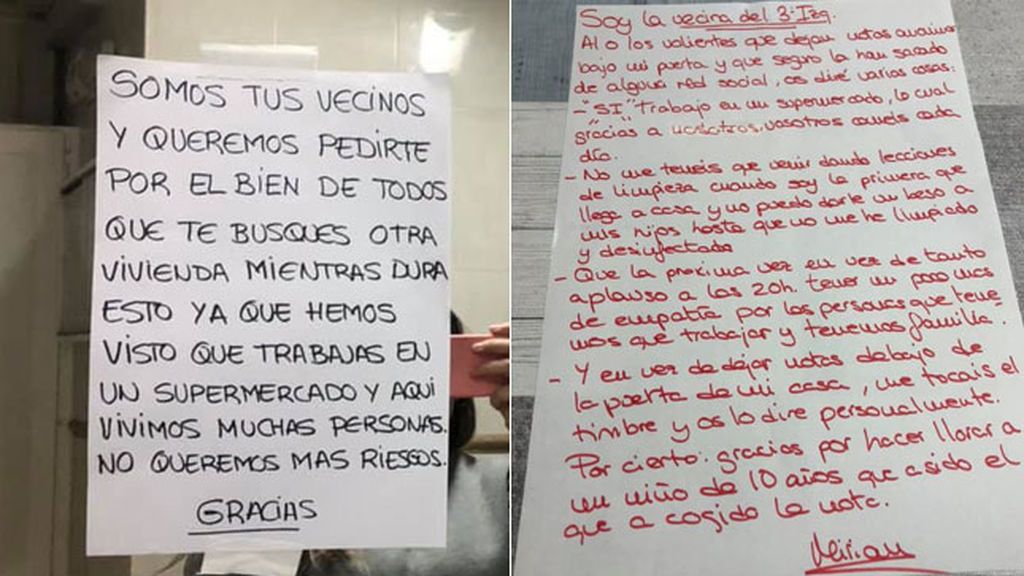 SOMOS TUS VECINOS
Y QUEREMOS PEDIRTE
POR EL BIEN DE TODOS
QUE TE BUSQUES OTRA
VIVIENDA MIENTRAS DURA
ESTO YA QUE HEMOS
VISTO QUE TRABAJAS EN
UN SUPERMERCADO Y AQUI
VIVIMOS MUCHAS PERSONAS.
NO QUEREMOS MAS RIESGOS.
GRACIAS
Soy la vecina del 3º Izq.
Al o los valientes que dejan notas
bajo mi puerta y que seguro la han sacado
de alguna red social, os diré varias cosas:
- "SI" Trabajo en un supermercado, lo cual
gracias a nosotros, vosotros coméis cada
día.
- No me teneis que venir dando lecciones
de limpieza cuando soy la primera que
llega a casa y no puedo darle un beso a
mis hijos hasta que no me he limpiado
y desinfectado
- Que la proxima vez en vez de tanto
aplauso a las 20h. tener un poco mas
de empatía por las personas que tene-
mos que trabajar y tenemos familia.
- Y en vez de dejar notas debajo de
la puerta de mi casa, me tocais el
timbre y os lo dire personalmente.
Por cierto: gracias por hacer llorar a
un niño de 10 años que a sido el
que a cogido la nota.
Mirian